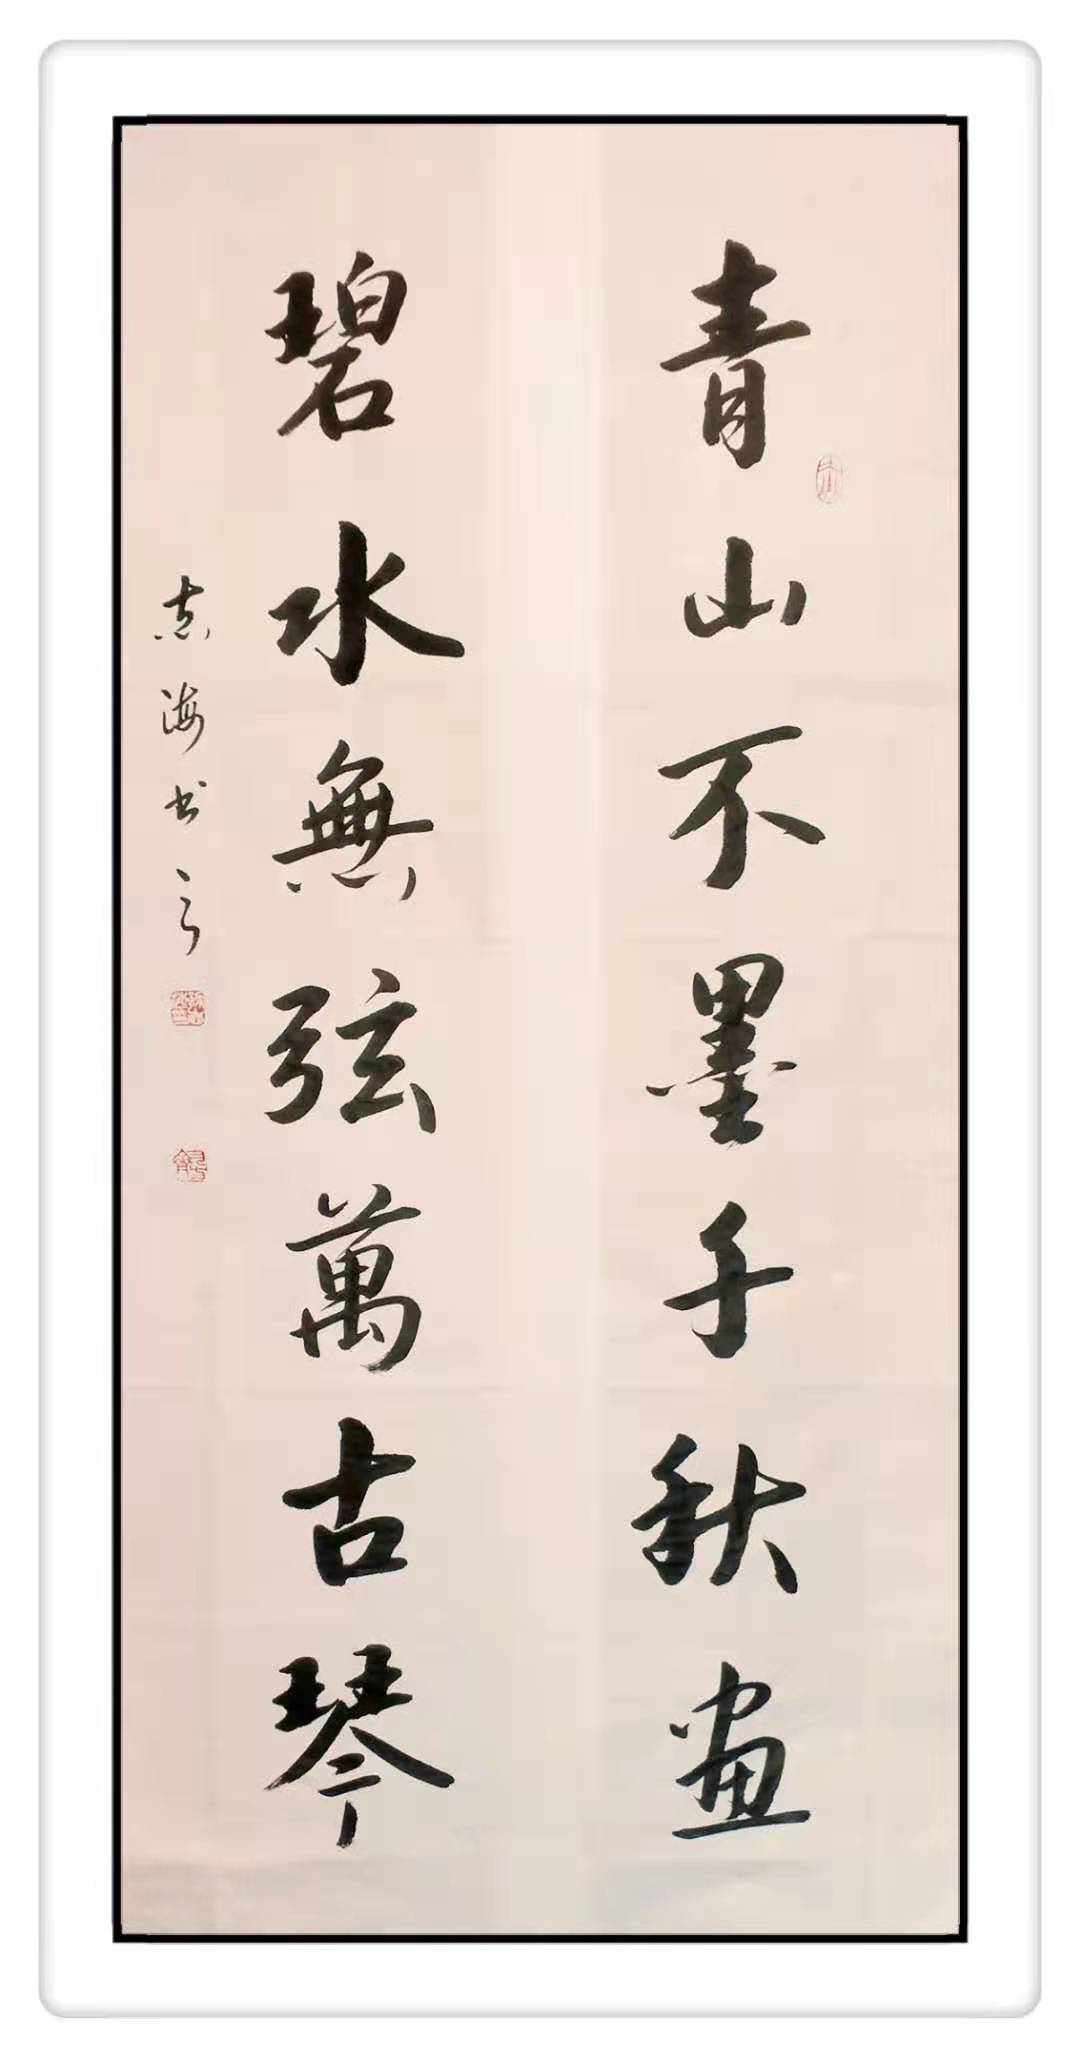 青山不墨千秋画
碧水無弦萬古琴
志海书